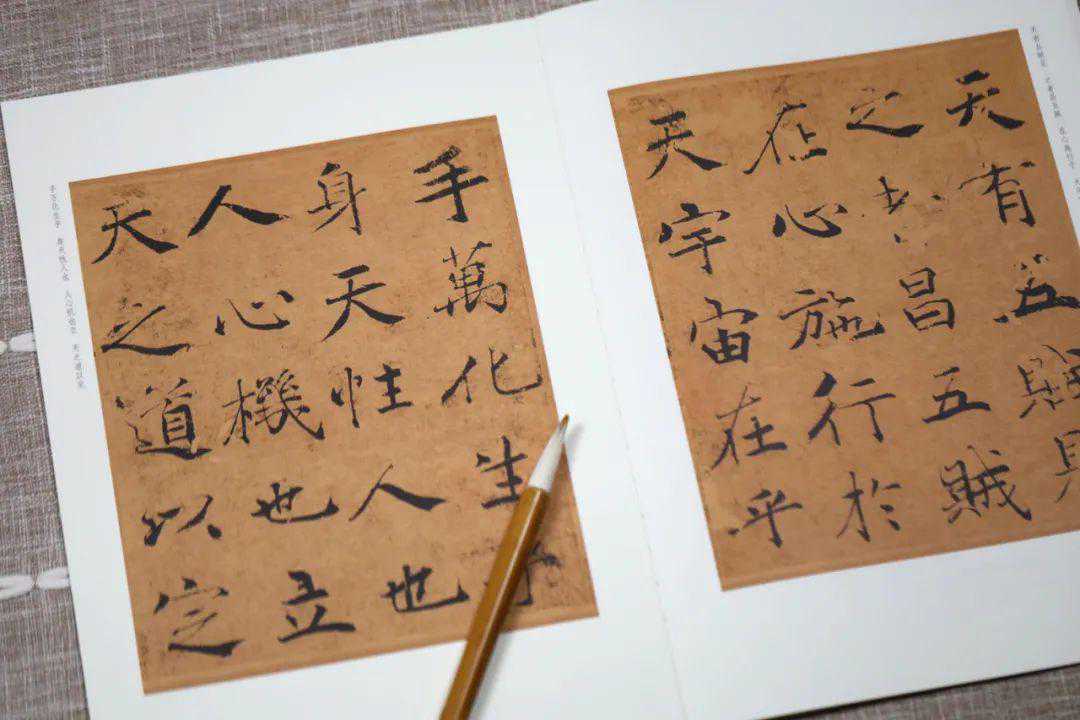 天有五賊見
之者昌五賊
在心施行於
天宇宙在乎
手萬化生乎
身天性人也
人心機也立
天之道以定
天有五贼见 之者昌五贼 在心施行于
手万化生乎 身天性人也 人心机也立 天之道以定